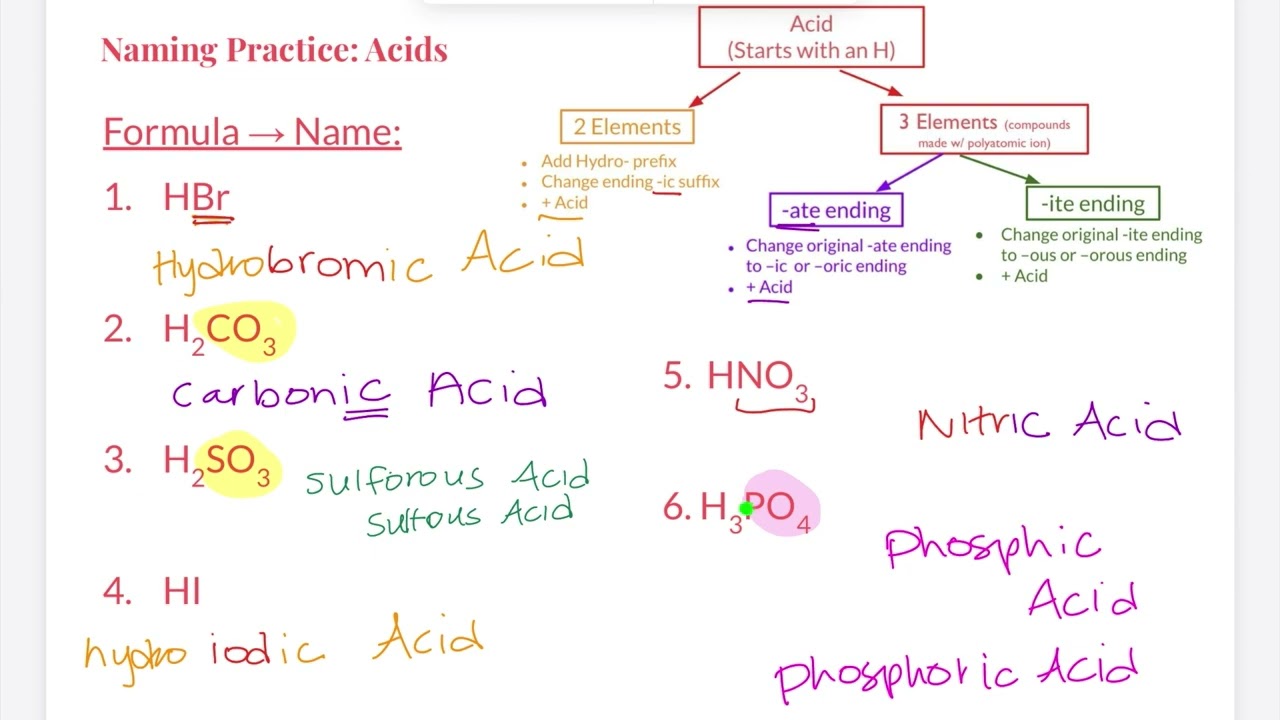 Naming Practice: Acids
Formula → Name:
1. HBr
Hydrobromic Acid
2. H₂CO₃
carbonic Acid
3. H₂SO₃
sulforous Acid
sulfous Acid
4. HI
hydro iodic Acid
Acid
(Starts with an H)
2 Elements
• Add Hydro- prefix
• Change ending -ic suffix
• + Acid
3 Elements (compounds
made w/ polyatomic ion)
-ate ending
• Change original -ate ending
to –ic or –oric ending
• + Acid
-ite ending
• Change original -ite ending
to –ous or –orous ending
• + Acid
5. HNO₃
Nitric Acid
6. H₃PO₄
Phosphic
Acid
Phosphoric Acid